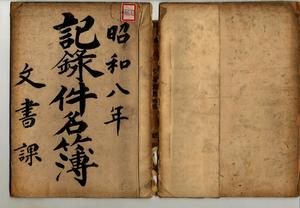 昭和八年
記録件名簿
文書課